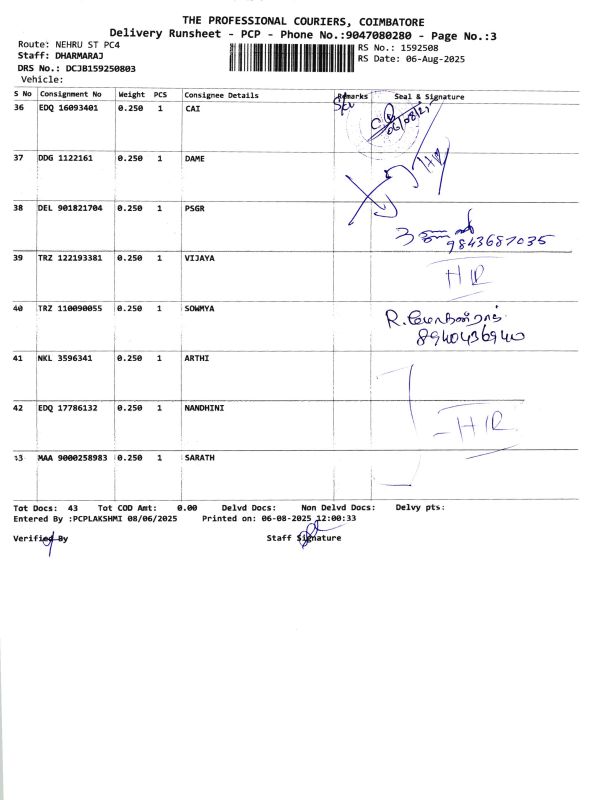 THE PROFESSIONAL COURIERS, COIMBATORE
Delivery Runsheet - PCP - Phone No.:9047080280 - Page No.:3
Route: NEHRU ST PC4
Staff: DHARMARAJ
DRS No.: DCJB159250803
Vehicle:
RS No.: 1592508
RS Date: 06-Aug-2025
S No Consignment No Weight PCS Consignee Details Remarks Seal & Signature
36 EDQ 16093401 0.250 1 CAI
06/08/25
37 DDG 1122161 0.250 1 DAME
38 DEL 901821704 0.250 1 PSGR
9843687035
39 TRZ 122193381 0.250 1 VIJAYA
40 TRZ 110090055 0.250 1 SOWMYA
8940436940
41 NKL 3596341 0.250 1 ARTHI
42 EDQ 17786132 0.250 1 NANDHINI
43 MAA 9000258983 0.250 1 SARATH
Tot Docs: 43 Tot COD Amt: 0.00 Delvd Docs: Non Delvd Docs: Delvy pts:
Entered By :PCPLAKSHMI 08/06/2025 Printed on: 06-08-2025 12:00:33
Verified By Staff Signature